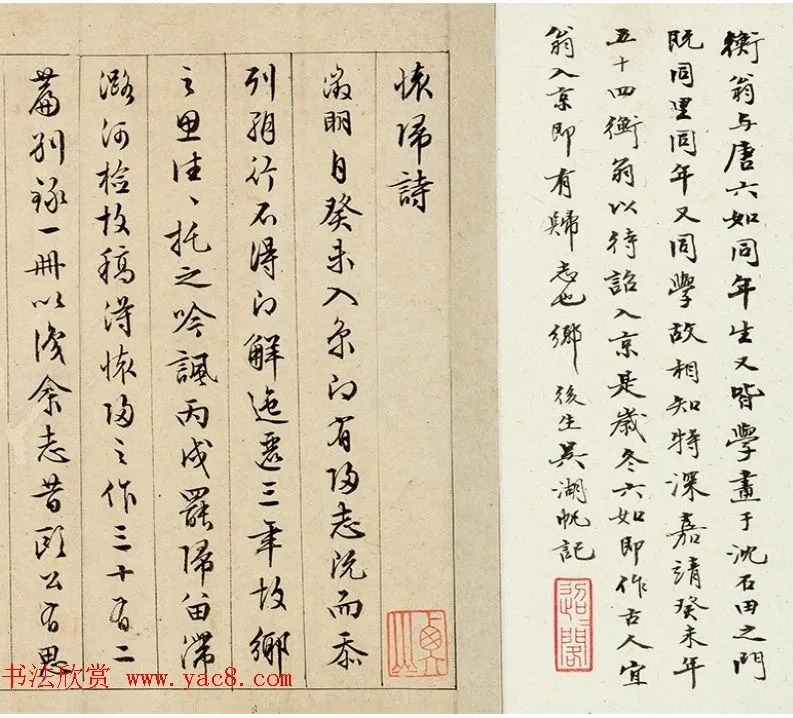 衡翁与唐六如同年生又皆學畫于沈石田之門
既同里同年又同學故相知特深嘉靖癸未年
五十四衡翁以待詔入京是歲冬六如即作古人宜
翁入京即有歸志也鄉後生吳湖帆記
懷歸詩
徵明自癸未入京即有歸志既而忝
列朝行不得即解迤邐三年故鄉
之思往、托之吟諷丙戌罷歸留滯
潞河檢故稿得懷歸之作三十有二
篇別錄一冊以識余志昔歐公有思
书法欣赏 www.yac8.com